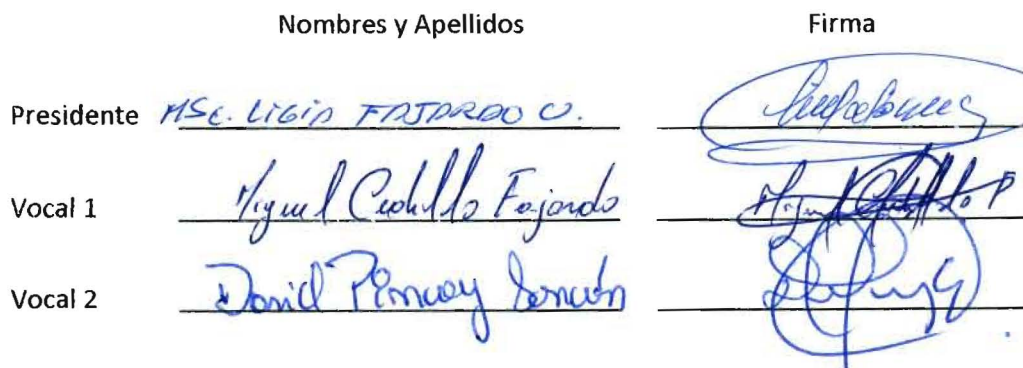 Nombres y Apellidos Firma
Presidente MSc. LIGIA FAJARDO U.
Vocal 1 Miguel Cedillo Fajardo
Vocal 2 David Pincay